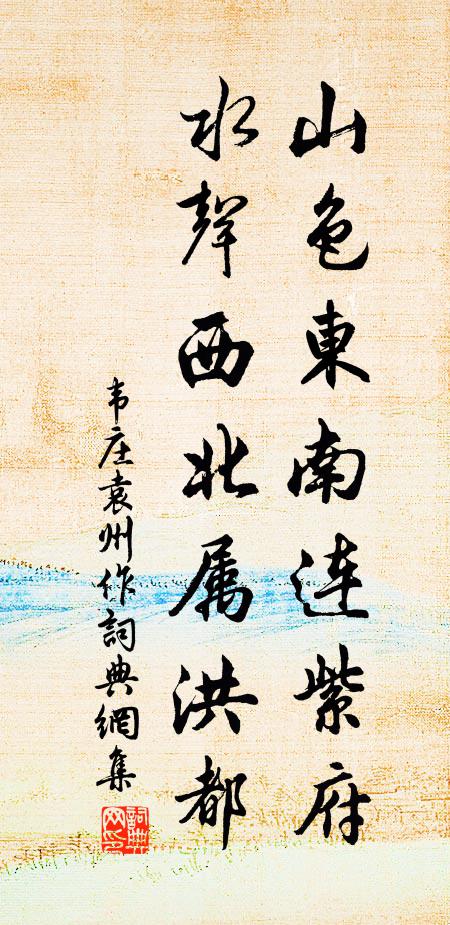 山色東南連紫府
水聲西北属洪都
韦庄袁州作詞典網集
詞典網印